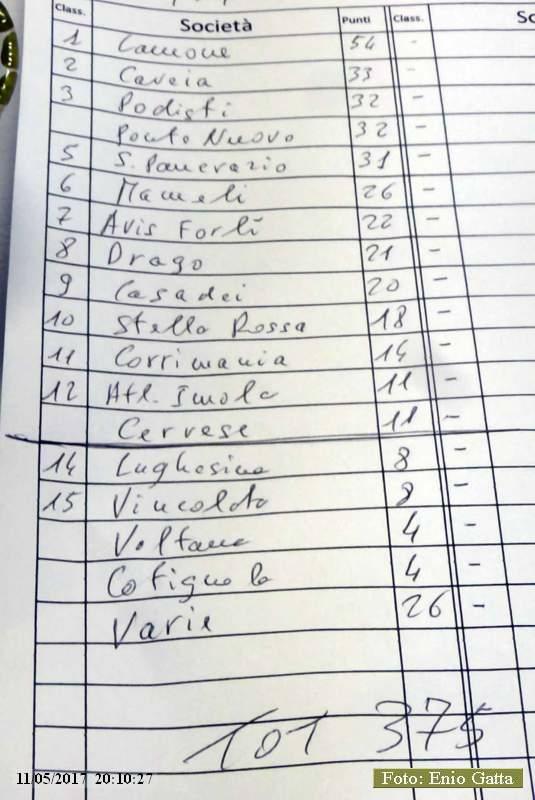 Class. Società Punti Class. Sc
1 Lamone 54 -
2 Caveja 33 -
3 Podisti 32 -
Ponte Nuovo 32 -
5 S. Pancrazio 31 -
6 Mameli 26 -
7 Avis Forlì 22 -
8 Drago 21 -
9 Casadei 20 -
10 Stella Rossa 18 -
11 Corrimania 14 -
12 Atl. Imola 11 -
Cervese 11 -
14 Lughesina 8 -
15 Vincoldo 8 -
Voltana 4 -
Cotignola 4 -
Varie 26 -
101 375
11/05/2017 20:10:27
Foto: Enio Gatta